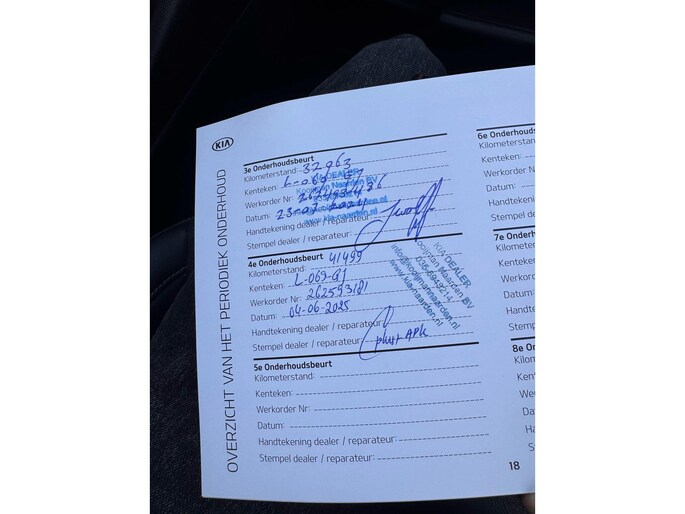 KIA
OVERZICHT VAN HET PERIODIEK ONDERHOUD
3e Onderhoudsbeurt
Kilometerstand: 32963
Kenteken: L-069-
Werkorder Nr:
Datum: 23-07-2024
Handtekening dealer / reparateur:
Stempel dealer / reparateur:
KIA DEALER
Kooijman Naarden BV
www.kia-naarden.nl
4e Onderhoudsbeurt
Kilometerstand: 41499
Kenteken: L-069-
Werkorder Nr: 262593181
Datum: 04-06-2025
Handtekening dealer / reparateur:
Stempel dealer / reparateur: plus APK
KIA DEALER
Kooijman Naarden BV
info@kooijmannaarden.nl
www.kia-naarden.nl
5e Onderhoudsbeurt
Kilometerstand:
Kenteken:
Werkorder Nr:
Datum:
Handtekening dealer / reparateur:
Stempel dealer / reparateur:
6e Onderhoudsbeurt
Kilometerstand
Kenteken:
Werkorder Nr:
Datum:
Handtekening
Stempel deale
7e Onderho
Kilometers
Kenteken:
Werkord
Datum:
Handte
Stemp
8e On
Kilon
Kent
We
Da
Ha
St
18